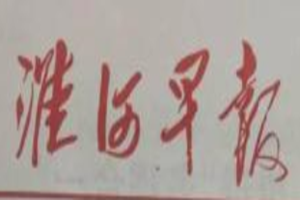 淮河早报